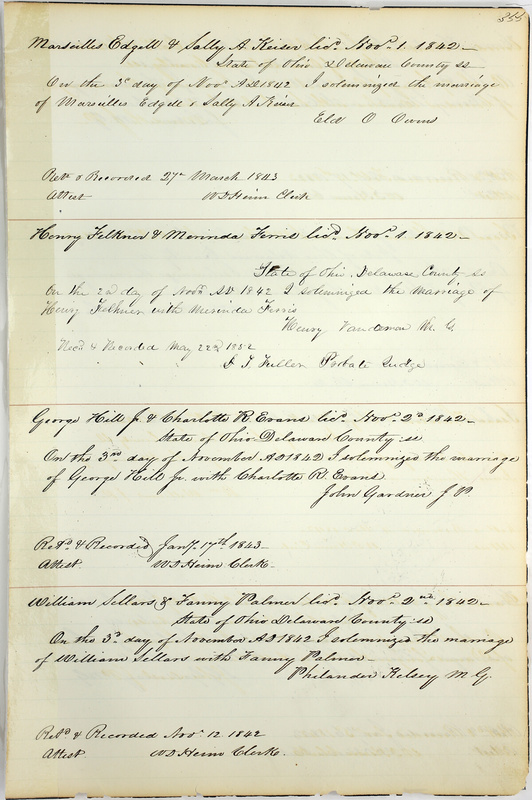 355
Marseilles Edgell & Sally A. Keiser licd. Novr. 1. 1842 —
State of Ohio Delaware County ss
On the 3d day of Novr AD 1842 I solemnized the marriage
of Marsilles Edgell & Sally A Keiser
Eld O Owens
Retd & Recorded 27th March 1843
Attest W D Heim Clerk
Henry Felkner & Merinda Ferris licd. Novr. 1. 1842 —
State of Ohio, Delaware County ss
On the 2nd day of Novr AD 1842 I solemnized the marriage of
Henry Felkner with Merinda Ferris
Henry Vandeman M. G.
Recd & Recorded May 22d 1852
D T Fuller Probate Judge
George Hill Jr. & Charlotte R. Evans licd. Novr. 2d 1842 —
State of Ohio Delaware County: ss
On the 3rd day of November AD 1842 I solemnized the marriage
of George Hill Jr with Charlotte R Evans
John Gardner J P.
Retd & Recorded Jany. 17th 1843 —
Attest W D Heim Clerk.
William Sellars & Fanny Palmer licd. Novr. 2nd 1842 —
State of Ohio Delaware County: ss
On the 3d day of November AD 1842 I solemnized the marriage
of William Sellars with Fanny Palmer —
Philander Kelsey M. G.
Retd & Recorded Novr 12 1842
Attest W D Heim Clerk.